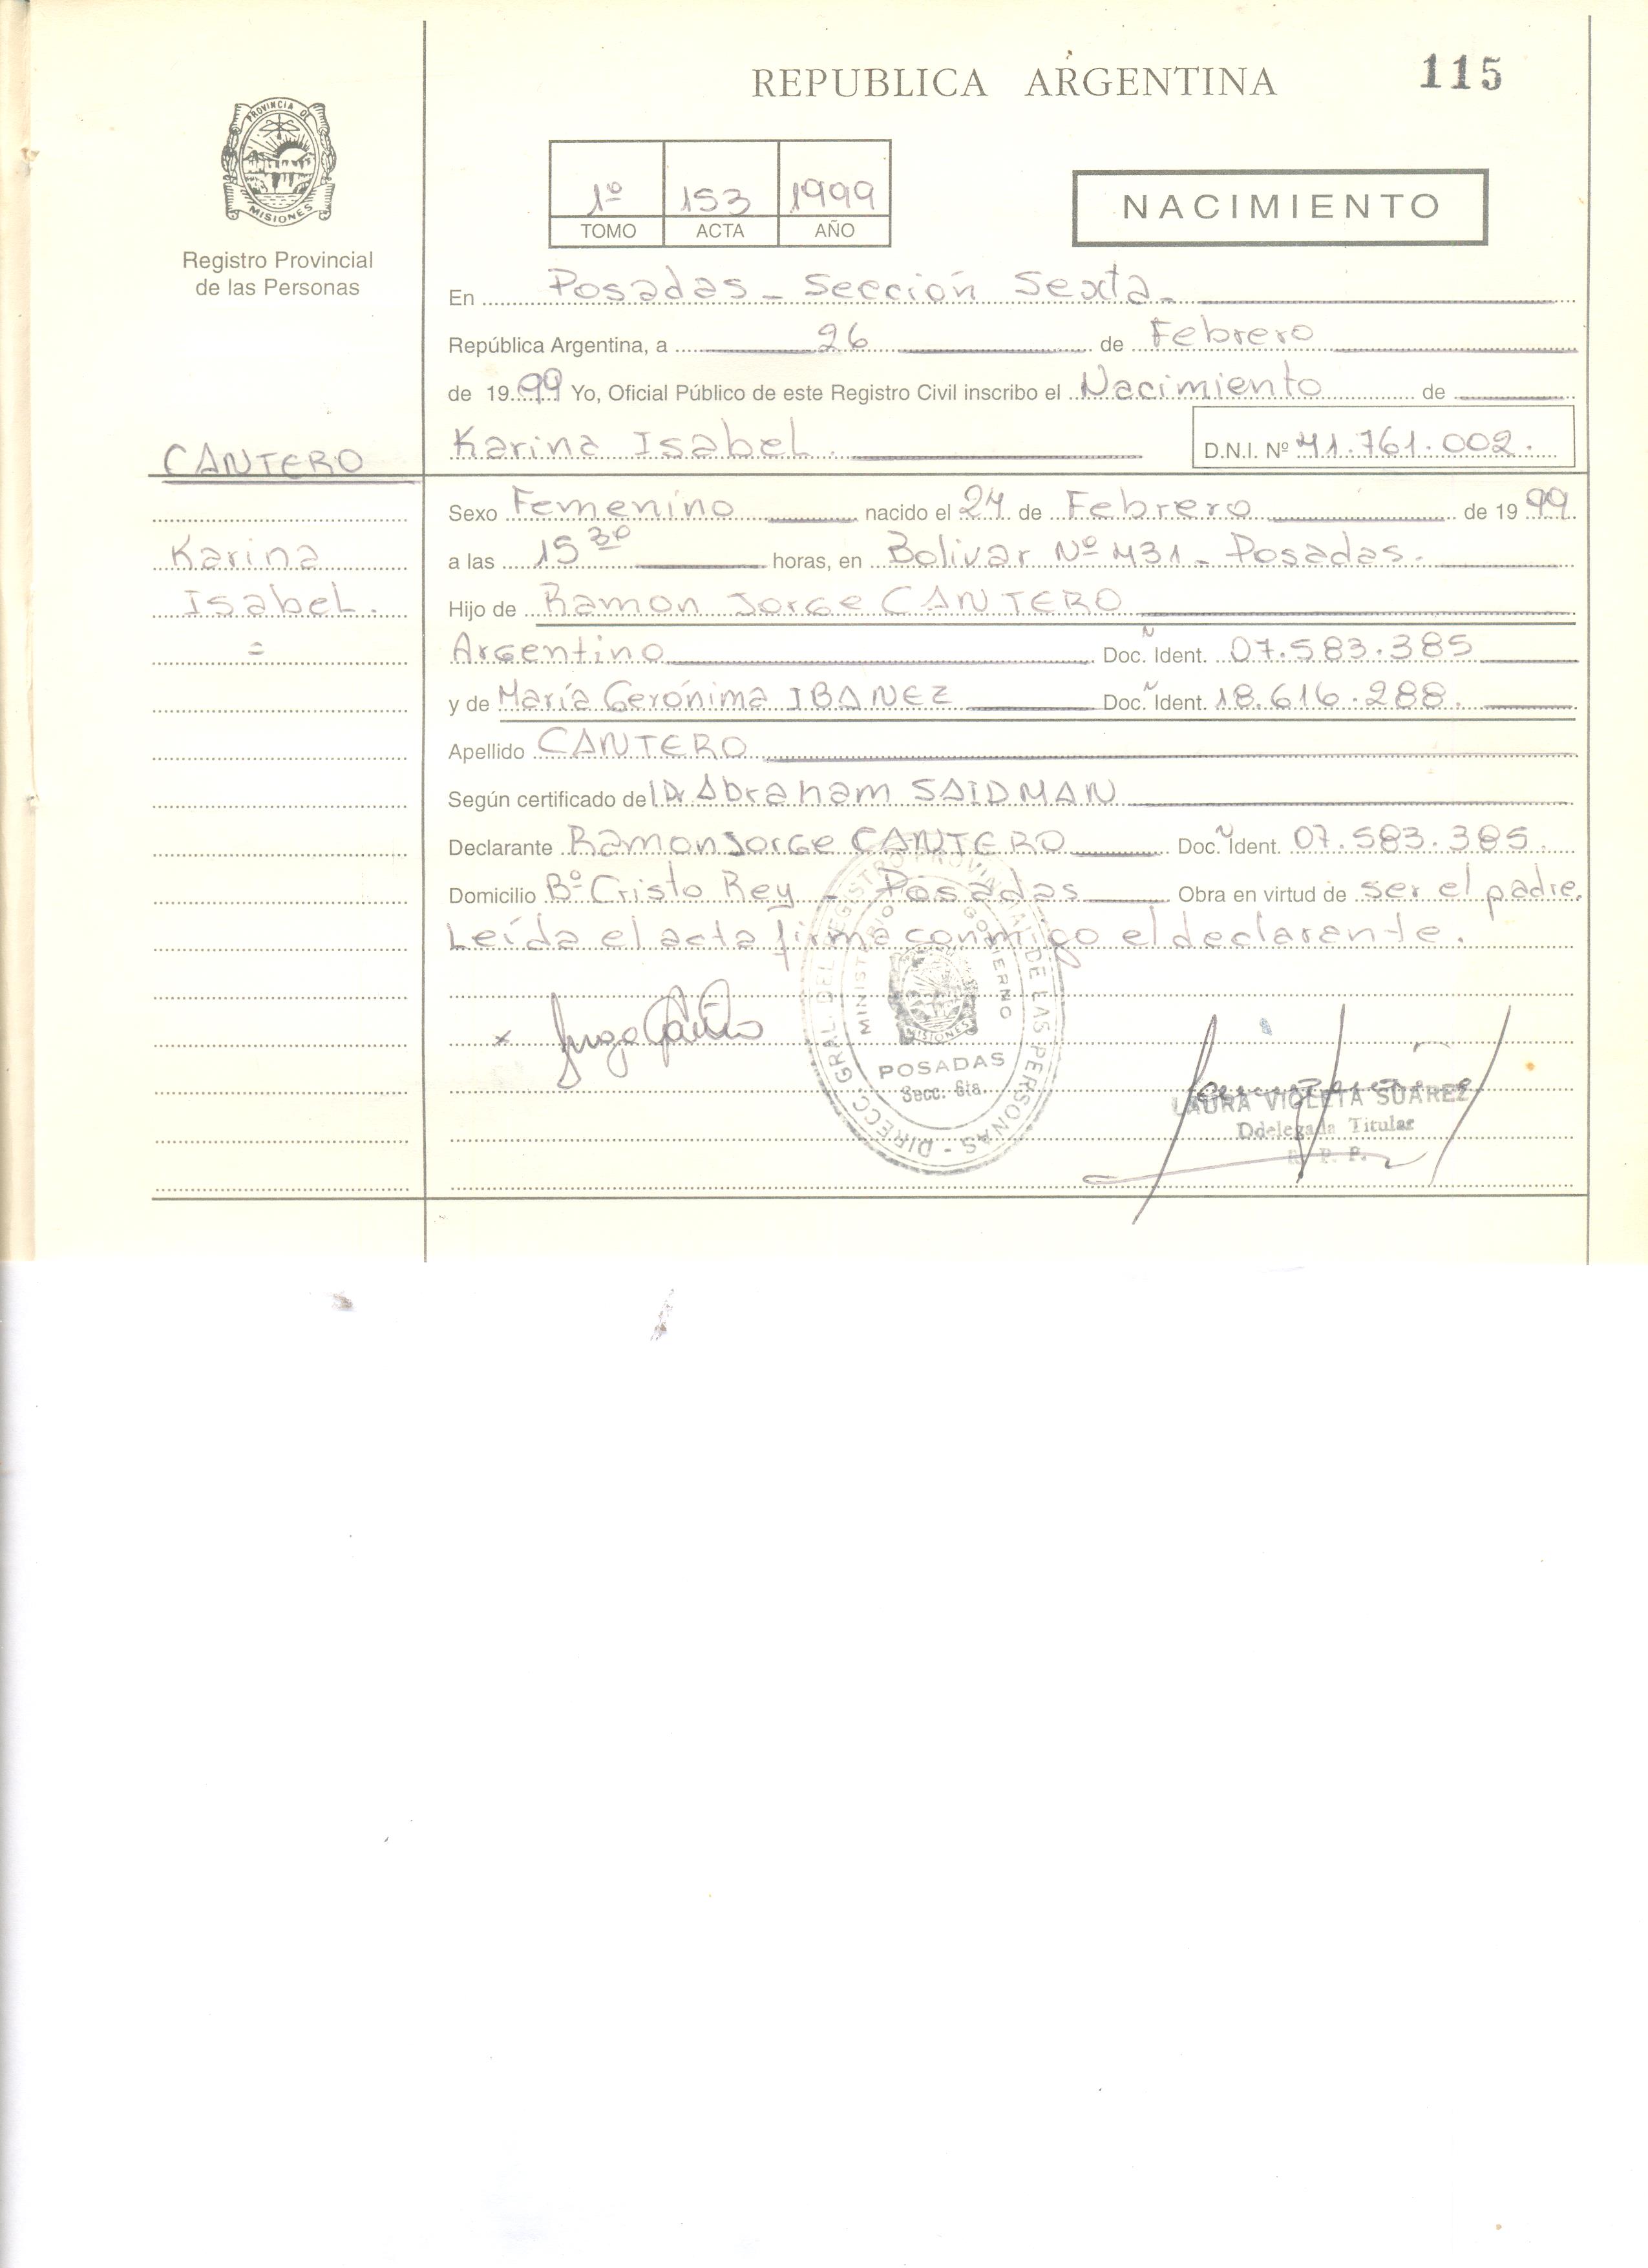 REPUBLICA ARGENTINA
115
PROVINCIA DE
MISIONES
Registro Provincial
de las Personas
1º 153 1999
TOMO ACTA AÑO
NACIMIENTO
En Posadas - Sección Sexta -
República Argentina, a 26 de Febrero
de 1999 Yo, Oficial Público de este Registro Civil inscribo el Nacimiento de
Karina Isabel. D.N.I. Nº 41.761.002.
CANTERO
Karina
Isabel.
Sexo Femenino nacido el 24 de Febrero de 1999
a las 15 30 horas, en Bolivar Nº 431 - Posadas.
Hijo de Ramon Jorge CANTERO
Argentino Doc. Ident. 07.583.385
y de María Gerónima IBANEZ Doc. Ident. 18.616.288.
Apellido CANTERO
Según certificado de Dr Abraham SAIDMAN
Declarante Ramon Jorge CANTERO Doc. Ident. 07.583.385.
Domicilio Bº Cristo Rey - Posadas Obra en virtud de ser el padre.
Leída el acta firma conmigo el declarante.
DIRECC. GRAL. DEL REGISTRO PROVINCIAL DE LAS PERSONAS -
MINISTERIO GOBIERNO
MISIONES
POSADAS
Secc. 6ta.
LAURA VIOLETA SUAREZ
Ddelegada Titular
R. P. P.